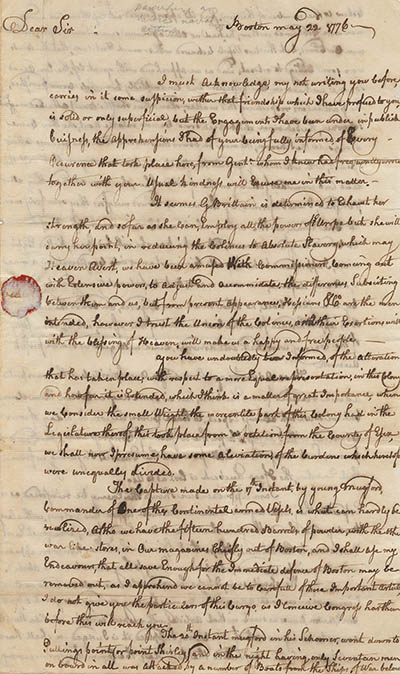 Dear Sir Boston may 22 1776
I must Acknowledge my not writing you before
carries in it some suspicion, wither that friendship which I have professed to you
is solid or only superficial, but the Engagements I have been under in publick
Buisness, the apprehensions I had of your being fully informed of Every
Occurance that took place here, from Gentn whom I knew had
together with your Usual kindness will Excuse me in this matter.
It seemes G Brittain is determined to Exhaust her
strength, and so far as she can, Employ all the power of Urope but she will
carry her point, in reducing the Colonies to Absolute Slavery, which may
Heaven Avert, we have been amused With Commissioners Coming out
with Extensive powers, to Adjust and accommidate the differences Subsisting
between them and us, but from present appearances, Hessians are the men
intended, however I trust the Union of the Colonies, and their Exertions with
with the blessing of Heaven, will make us a happy and free people
you have undoubtedly been Informed, of the alteration
that has taken place, with respect to a more Equal representation, in this Colony
and how far it is Extended, which I think is a matter of great Importance, when
we Consider the small Weight, the mercantile part of this Colony had in the
Legislature thereof, this took place from a petition from the County of Essex,
we shall now I presume, have some Aleviation of the Burdens which heretofore
were unequally divided.
The Capture made on the 17th Instant, by young mugford,
Commander of One of the Continental armed Vessels, is what can hardly be
realized, Altho we have the fifteen hundred Barrels of powder, with the other
war like stores, in Our magazines Chiefly out of Boston, and I shall use my
Endeavour, that all save Enough for the Immediate defence of Boston may be
removed out, as I apprehend we cannot be to Carefull of those Important Articles
I do not give you the particulars of this Cargo, as I Conceive Congress hath them
before this will reach you.
The 20th Instant mugford in his Schooner, went down to
Pullings point, (or point Shirley) and in the night having, only Seventeen men
on board in all was Attacked, by a number of Boats from the Ships of War below